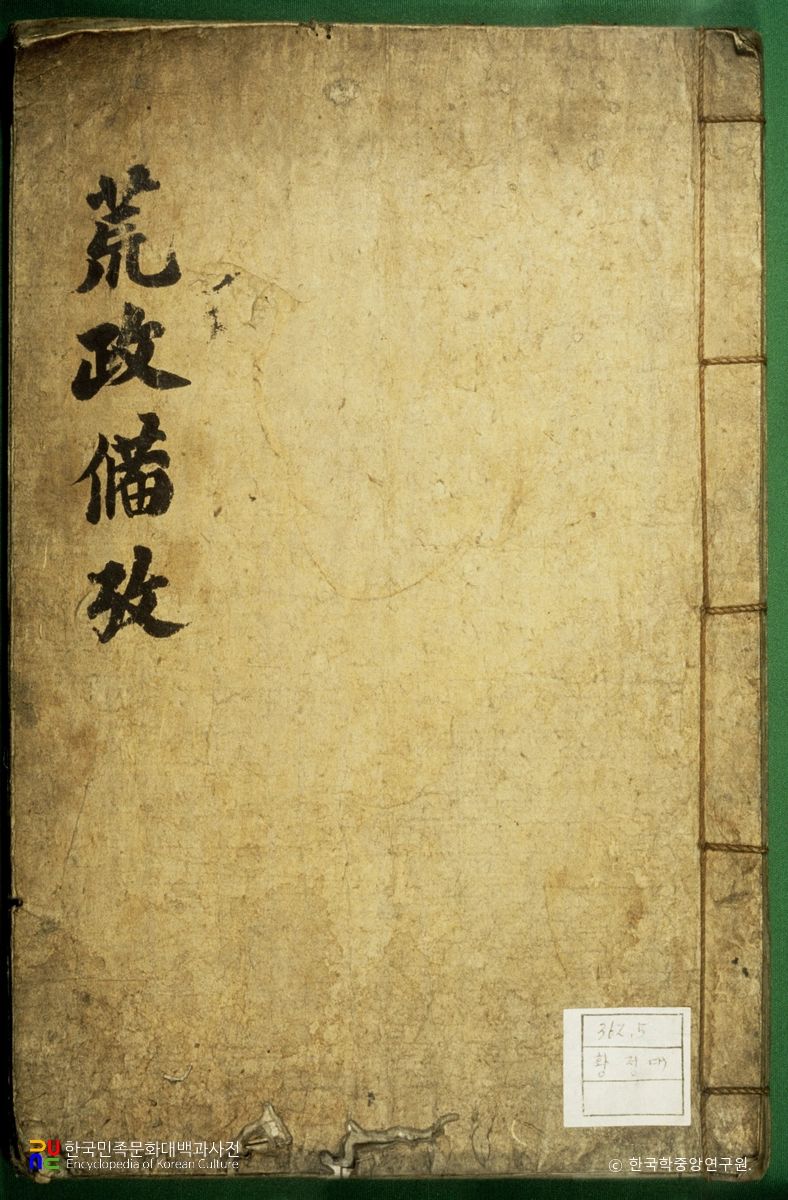 荒政備攷
362.5
황정대
한국민족문화대백과사전
Encyclopedia of Korean Culture
© 한국학중앙연구원.